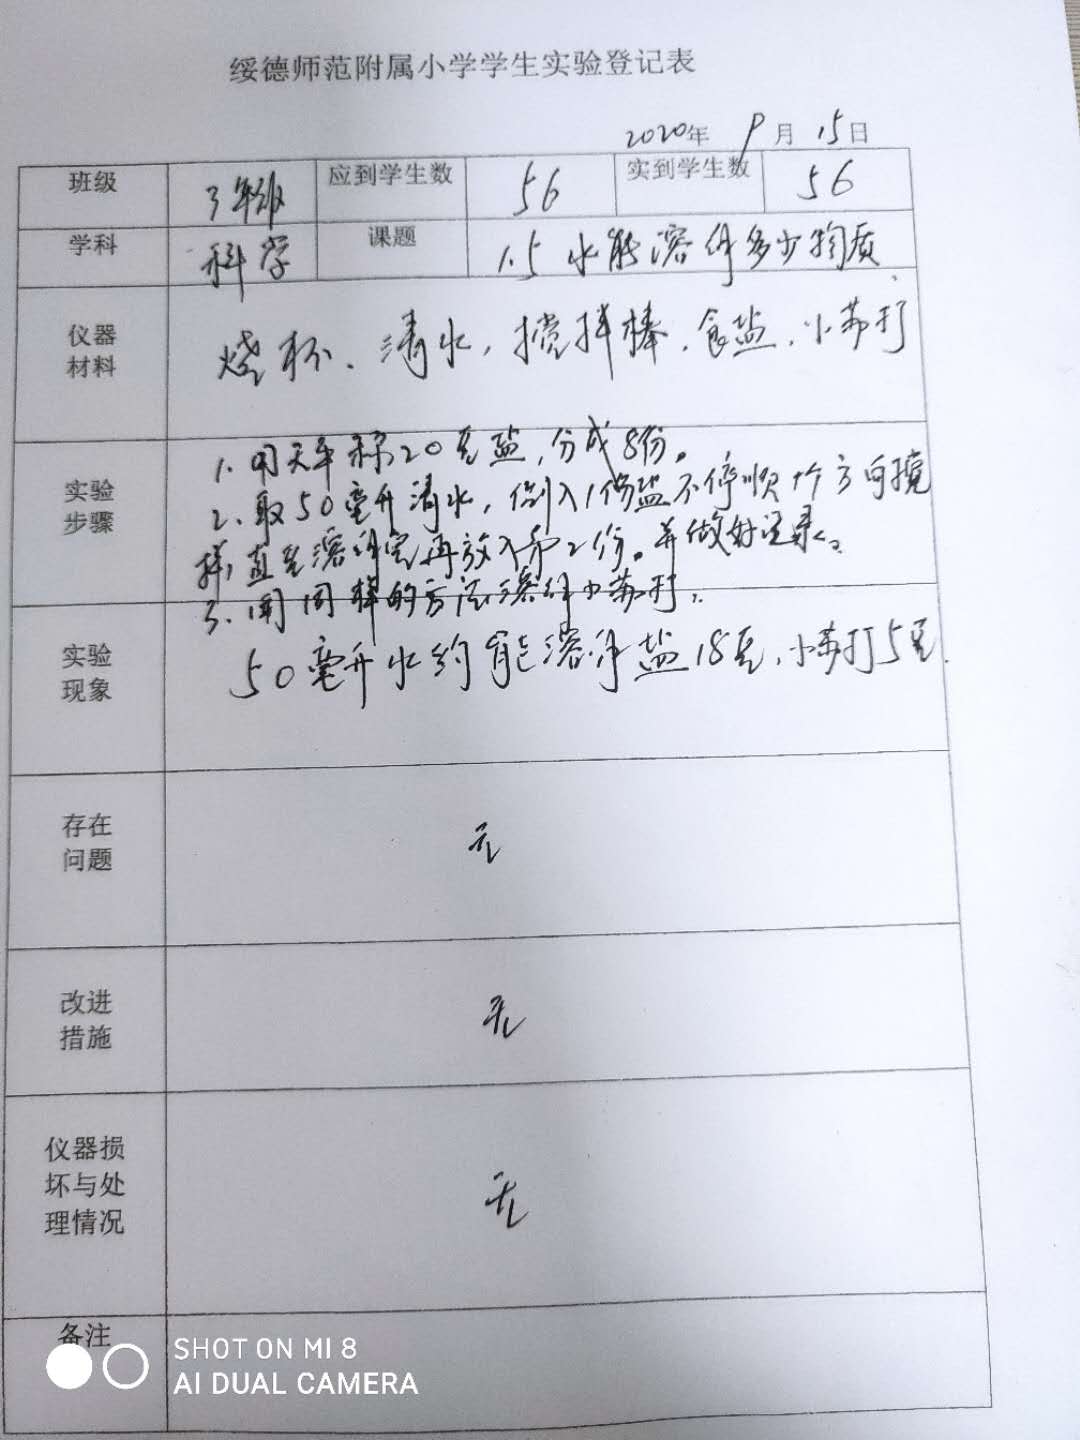 绥德师范附属小学学生实验登记表
2020年 9月 15日
班级 3年级 应到学生数 56 实到学生数 56
学科 科学 课题 1.5 水能溶解多少物质
仪器
材料
烧杯、清水,搅拌棒、食盐、小苏打
实验
步骤
1.用天平称20克盐,分成8份。
2.取50毫升清水,倒入1份盐不停顺一个方向搅
拌,直至溶解完再放入第2份。并做好记录。
3.用同样的方法溶解小苏打。
实验
现象
50毫升水约能溶解盐18克,小苏打5克.
存在
问题
无
改进
措施
无
仪器损
坏与处
理情况
无
备注
SHOT ON MI 8
AI DUAL CAMERA